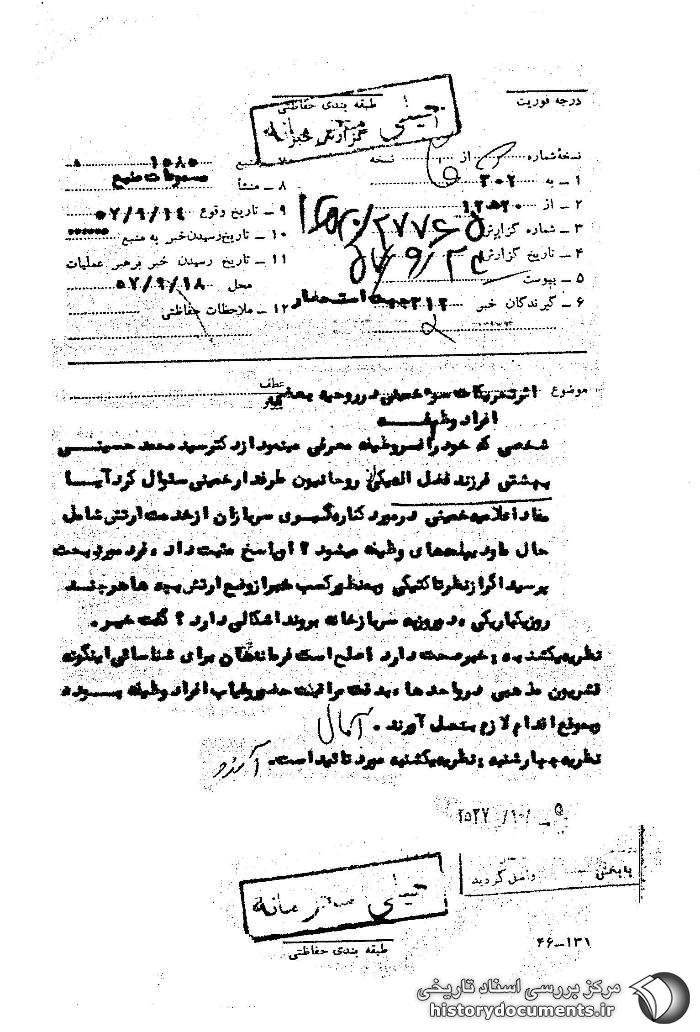 طبقه بندی حفاظتی
درجه فوریت
خیلی محرمانه
گزارش خبر
نسخهٔ شماره از نسخه
۱ ــ به ۳۰۲
۲ ــ از ۱۲۵۲۰
۳ ــ شماره گزارش
۴ ــ تاریخ گزارش
۵ ــ پیوست
۶ ــ گیرندگان خبر ۳۱۲ جهت استحضار
منبع ۱۰۸۰
۸ ــ منشأ مسموعات منبع
۹ ــ تاریخ وقوع ۵۷/۹/۱۴
۱۰ ــ تاریخ رسیدن خبر به منبع
۱۱ ــ تاریخ رسیدن خبر برهبر عملیات
محل ۵۷/۹/۱۸
۱۲ ــ ملاحظات حفاظتی
موضوع اثر تحریکات سوء خمینی در روحیه بعضی
عطف
افراد وظیفه
شخصی که خود را افسر وظیفه معرفی مینمود از دکتر سید محمد حسینی
بهشتی فرزند فضل اله یکی از روحانیون طرفدار خمینی سئوال کرد آیا
مفاد اعلامیه خمینی در مورد کناره گیری سربازان از خدمت ارتش شامل
حال داوطلبهای وظیفه میشود ؟ پاسخ مثبت داد ، فرد مورد بحث
پرسید اگر از نظر تاکتیکی و بمنظور کسب خبر از وضع ارتش بچه ها هر چند
روز یکبار یکی دو روز به سربازخانه بروند اشکالی دارد ؟ گفت خیر .
نظریه یکشنبه : خبر صحت دارد اصلح است فرماندهان برای شناسائی اینگونه
قشریون مذهبی در واحدها ، بدقت مراقبت حضور و غیاب افراد وظیفه بوده
و بموقع اقدام لازم بعمل آورند . آمال
نظریه چهارشنبه : نظریه یکشنبه مورد تائید است .
۲۵۳۷ /۱۰/
بایگانی
واصل گردید
خیلی محرمانه
طبقه بندی حفاظتی
۴۶ــ۱۳۱
مرکز بررسی اسناد تاریخی
historydocuments.ir